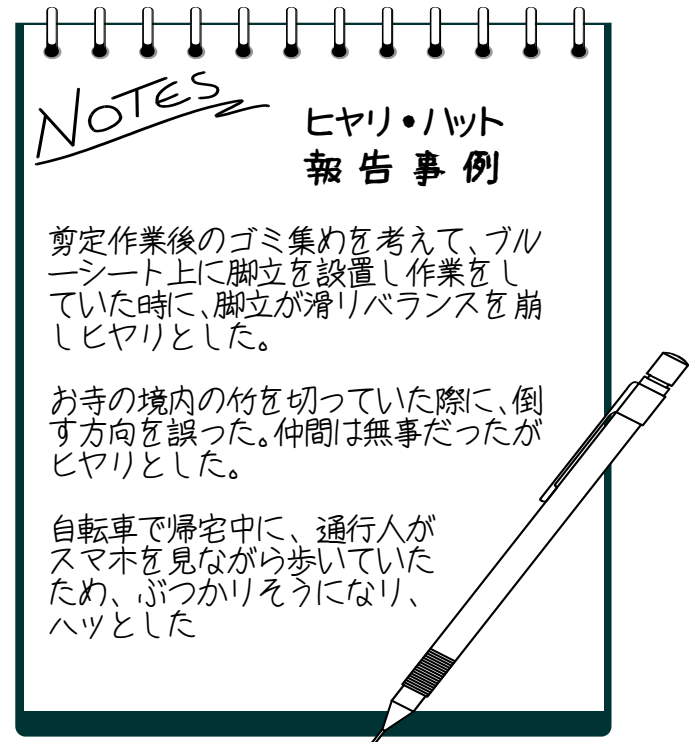 NOTES
ヒヤリ・ハット
報告事例
剪定作業後のゴミ集めを考えて、ブル
ーシート上に脚立を設置し作業をし
ていた時に、脚立が滑りバランスを崩
しヒヤリとした。
お寺の境内の竹を切っていた際に、倒
す方向を誤った。仲間は無事だったが
ヒヤリとした。
自転車で帰宅中に、通行人が
スマホを見ながら歩いていた
ため、ぶつかりそうになり、
ハッとした